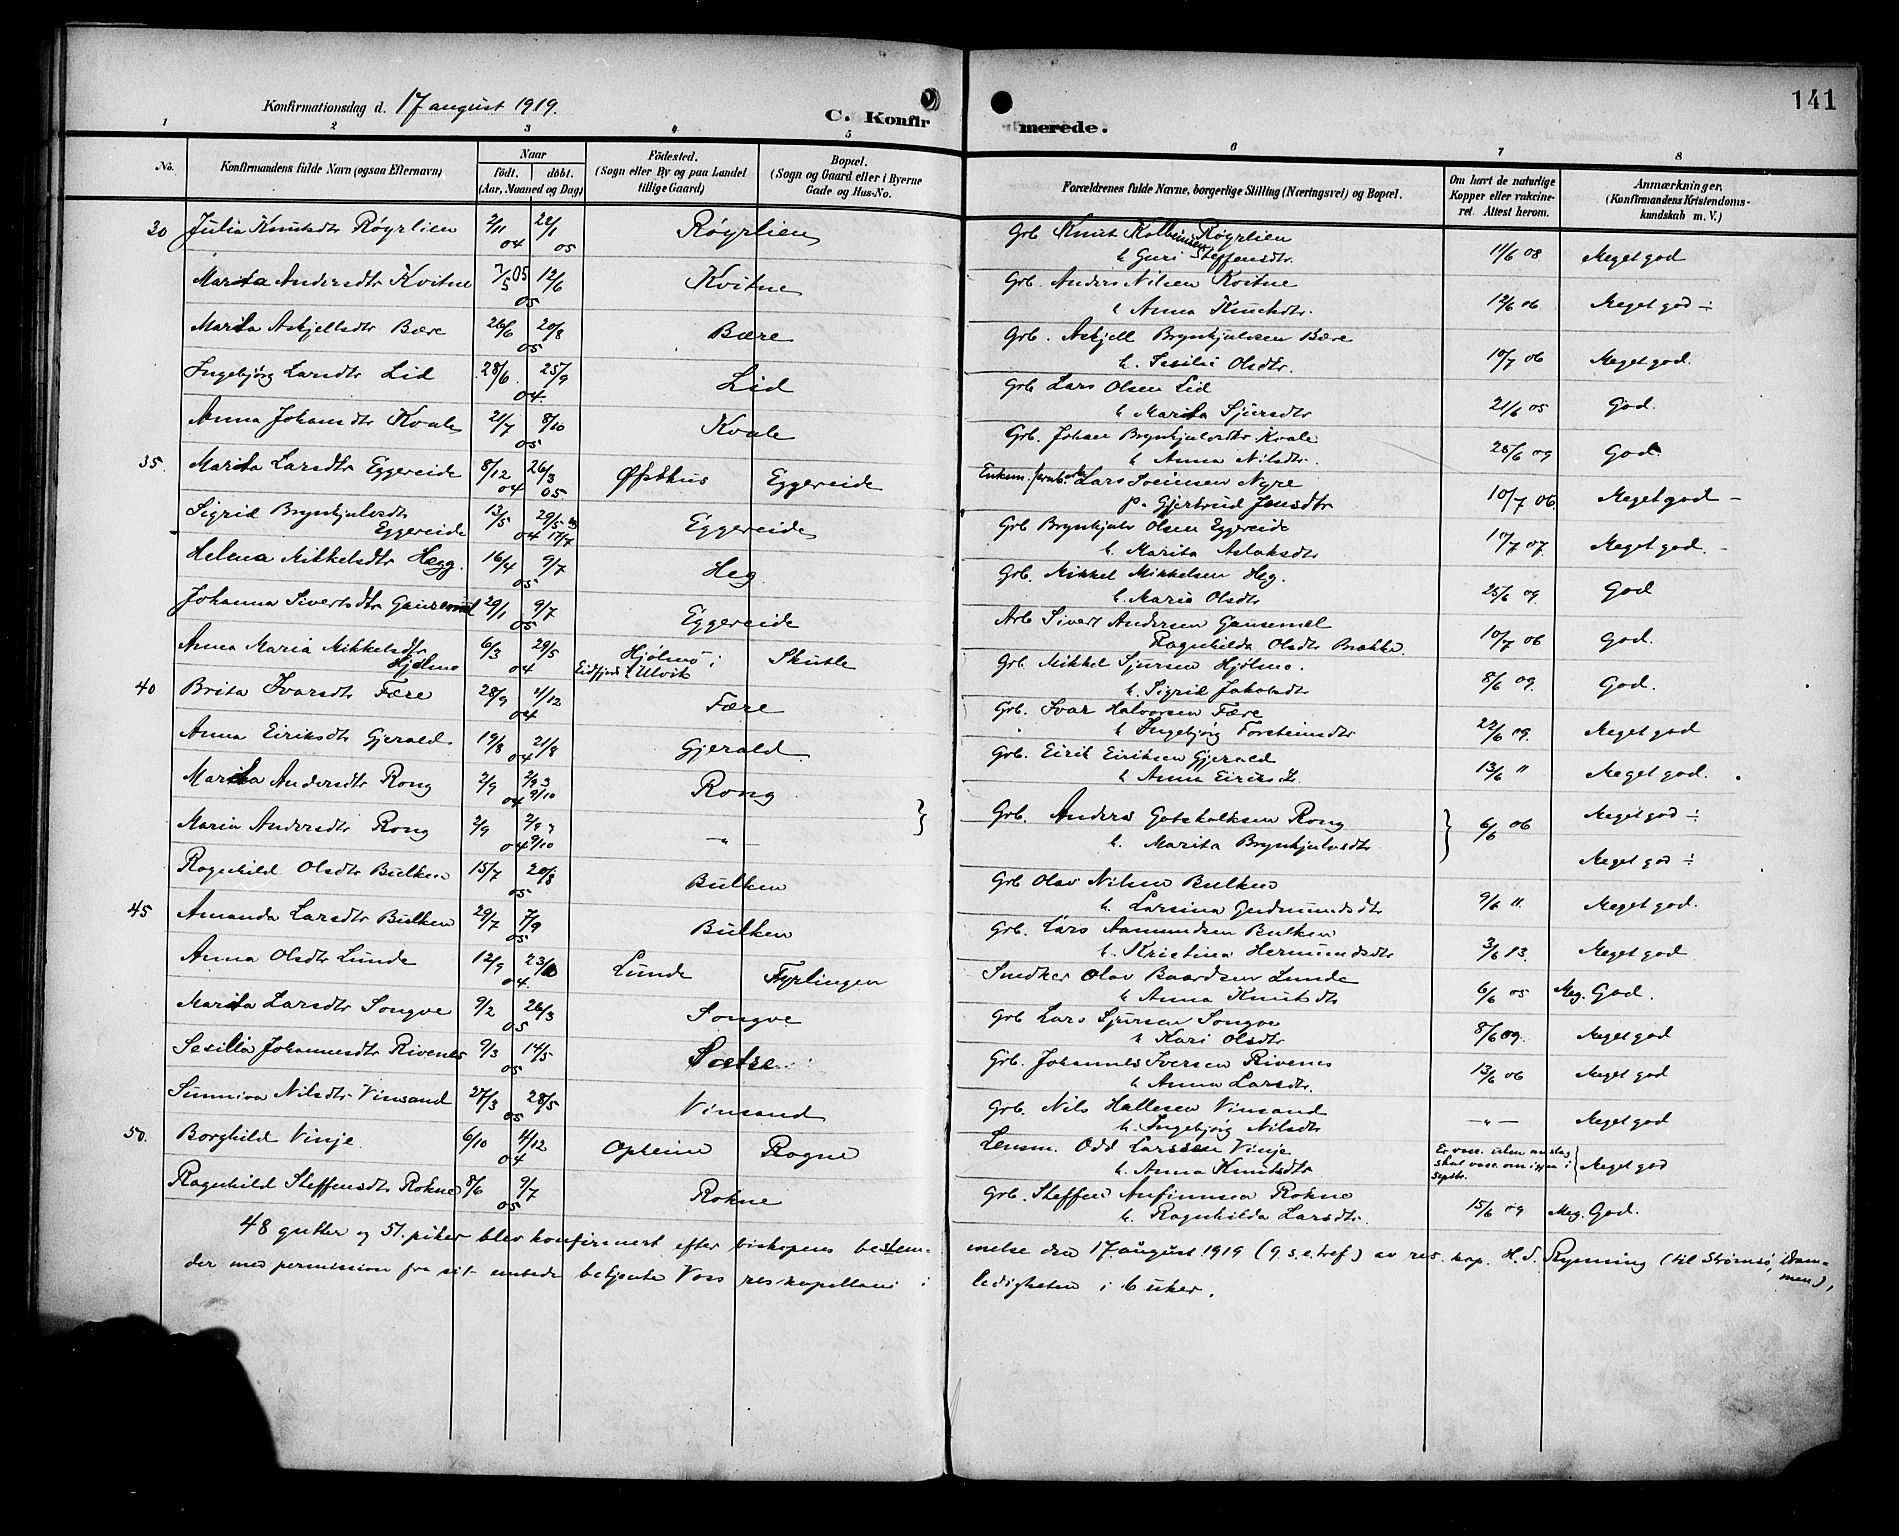 Konfirmationsdag d. 17 august 1919.
C. Konfirmerede.
141
1 2 3 4 5 6 7 8
No.
Konfirmandens fulde Navn (ogsaa Efternavn)
Naar
født. døbt.
(Aar, Maaned og Dag)
Fødested.
(Sogn eller By og paa Landet
tillige Gaard)
Bopæl.
(Sogn og Gaard eller i Byerne
Gade og Hus-No.
Forældrenes fulde Navne, borgerlige Stilling (Næringsvei) og Bopæl.
Om havt de naturlige
Kopper eller vakcine-
ret. Attest herom.
Anmærkninger.
(Konfirmandens Kristendoms-
kundskab m. V.)
30 Julia Knutsdtr Røyrlien 2/11 04 22/1 05 Røyrlien Grb Knut Kolbeinsen Røyrlien
h Guri Steffensdtr. 11/6 08 Meget god
Marita Andersdtr Kvitne 7/5 05 12/6 05 Kvitne Grb. Anders Nilsen Kvitne
h Anna Knutsdtr. 12/6 06 Meget god ÷
Marita Askjellsdtr Bære 26/6 20/8 05 Bære Grb. Askjell Brynhjulvsen Bære
h. Sesilie Olsdtr. 10/7 06 Meget god.
Ingebjørg Larsdtr Lid 28/6 25/9 04. Lid Grb Lars Olsen Lid
h Marita Sjursdtr 21/6 05 God.
Anna Johansdtr Kvale 21/7 8/10 05 Kvale Grb. Johan Brynhjulvsdtr Kvale
h Anna Nilsdtr. 28/6 09 God.
35. Marita Larsdtr Eggereide 8/12 04 26/3 05 Øfsthus Eggereide Enkem. Lars Sveinsen Nyre
p. Gjertrud Jensdtr 10/7 06. Meget god –
Sigrid Brynhjulvsdtr
Eggereide 13/5 29/5 04 17/7 Eggereide Grb Brynhjulv Olsen Eggereide
h. Marita Aslaksdtr 10/7 07. Meget god. –
Helena Mikkelsdtr Hegg. 16/4 9/7 05 Heg Grb. Mikkel Mikkelsen Heg.
h. Marie Olsdtr 25/6 09. God
Johanna Sivertsdtr Gausemel 29/1 9/7 05 Eggereide Arb Sivert Andersen Gausemel
Ragnhilda Olsdtr Brække. 10/7 06 God.
Anna Maria Mikkelsdtr
Hjølmo 6/3 29/5 04 Hjølmo i
Eidfjord i Ulvik Skutle Grb. Mikkel Sjursen Hjølmo.
h. Sigrid Jakobsdtr 8/6 09. God.
40 Brita Ivarsdtr Fære 28/9 4/12 04 Fære Grb. Ivar Halvorsen Fære
h Ingebjørg Torsteinsdtr 22/6 09. Meget god
Anna Eiriksdtr Gjerald. 19/8 21/8 04 Gjerald Grb. Eirik Eiriksen Gjerald
h Anna Eiriksdtr. 13/6 " Meget god.
Marita Andersdtr Rong 2/9 04 9/10 Rong Meget god ÷
Maria Andersdtr Rong 2/9 04 9/10 –"– } Grb. Anders Gotskalksen Rong
h. Marita Brynhjulvsdtr } 6/6 06 Meget god ÷
Ragnhild Olsdtr Bulken 15/7 20/8 05 Bulken Grb Olav Nilsen Bulken
h. Larsina Gudmundsdtr 9/6 11. Meget god.
45 Amanda Larsdtr Bulken 29/7 7/9 05 Bulken Grb. Lars Aamundsen Bulken
h. Kristina Hermundsdtr 3/6 13. Meget god
Anna Olsdtr Lunde 12/9 04 Lunde Fyrlingen Snedker Olav Baardsen Lunde
h Anna Knutsdtr 6/6 05 Meg. God.
Marita Larsdtr Songve 9/2 26/3 05 Songve Grb Lars Sjursen Songve
h Kari Olsdtr 8/6 09. Meget god
Sesilia Johannesdtr Rivenes 9/3 14/5 05 Sætre Grb. Johannes Iversen Rivenes
h Anna Larsdtr. 13/6 06 Meget god
Sunniva Nilsdtr. Vinsand 27/3 28/5 05 Vinsand Grb. Nils Hallesen Vinsand
h. Ingebjørg Nilsdtr –"– Meget god
50. Borghild Vinje 6/10 4/12 04 Opheim Rogne Lensm. Odd Larssen Vinje
h. Anna Knutsdtr Er vacc. uten anslag
skal vacc. om igjen i
septr. } Meget god
Ragnhild Steffensdtr Rokne 8/6 9/7 05 Rokne Grb. Steffen Anfinnsen Rokne
h. Ragnhilda Larsdtr. 15/6 09 Meg. God.
48 gutter og 51. piker blev konfirmert efter biskopens bestem-
melse den 17 august 1919 (9 s. e. tref) av res. kap. H. S. Rynning (til Strømsø, Dram-
men),
der med permission fra sit embede betjente Voss reskapellani i
ledigheten i 6 uker.